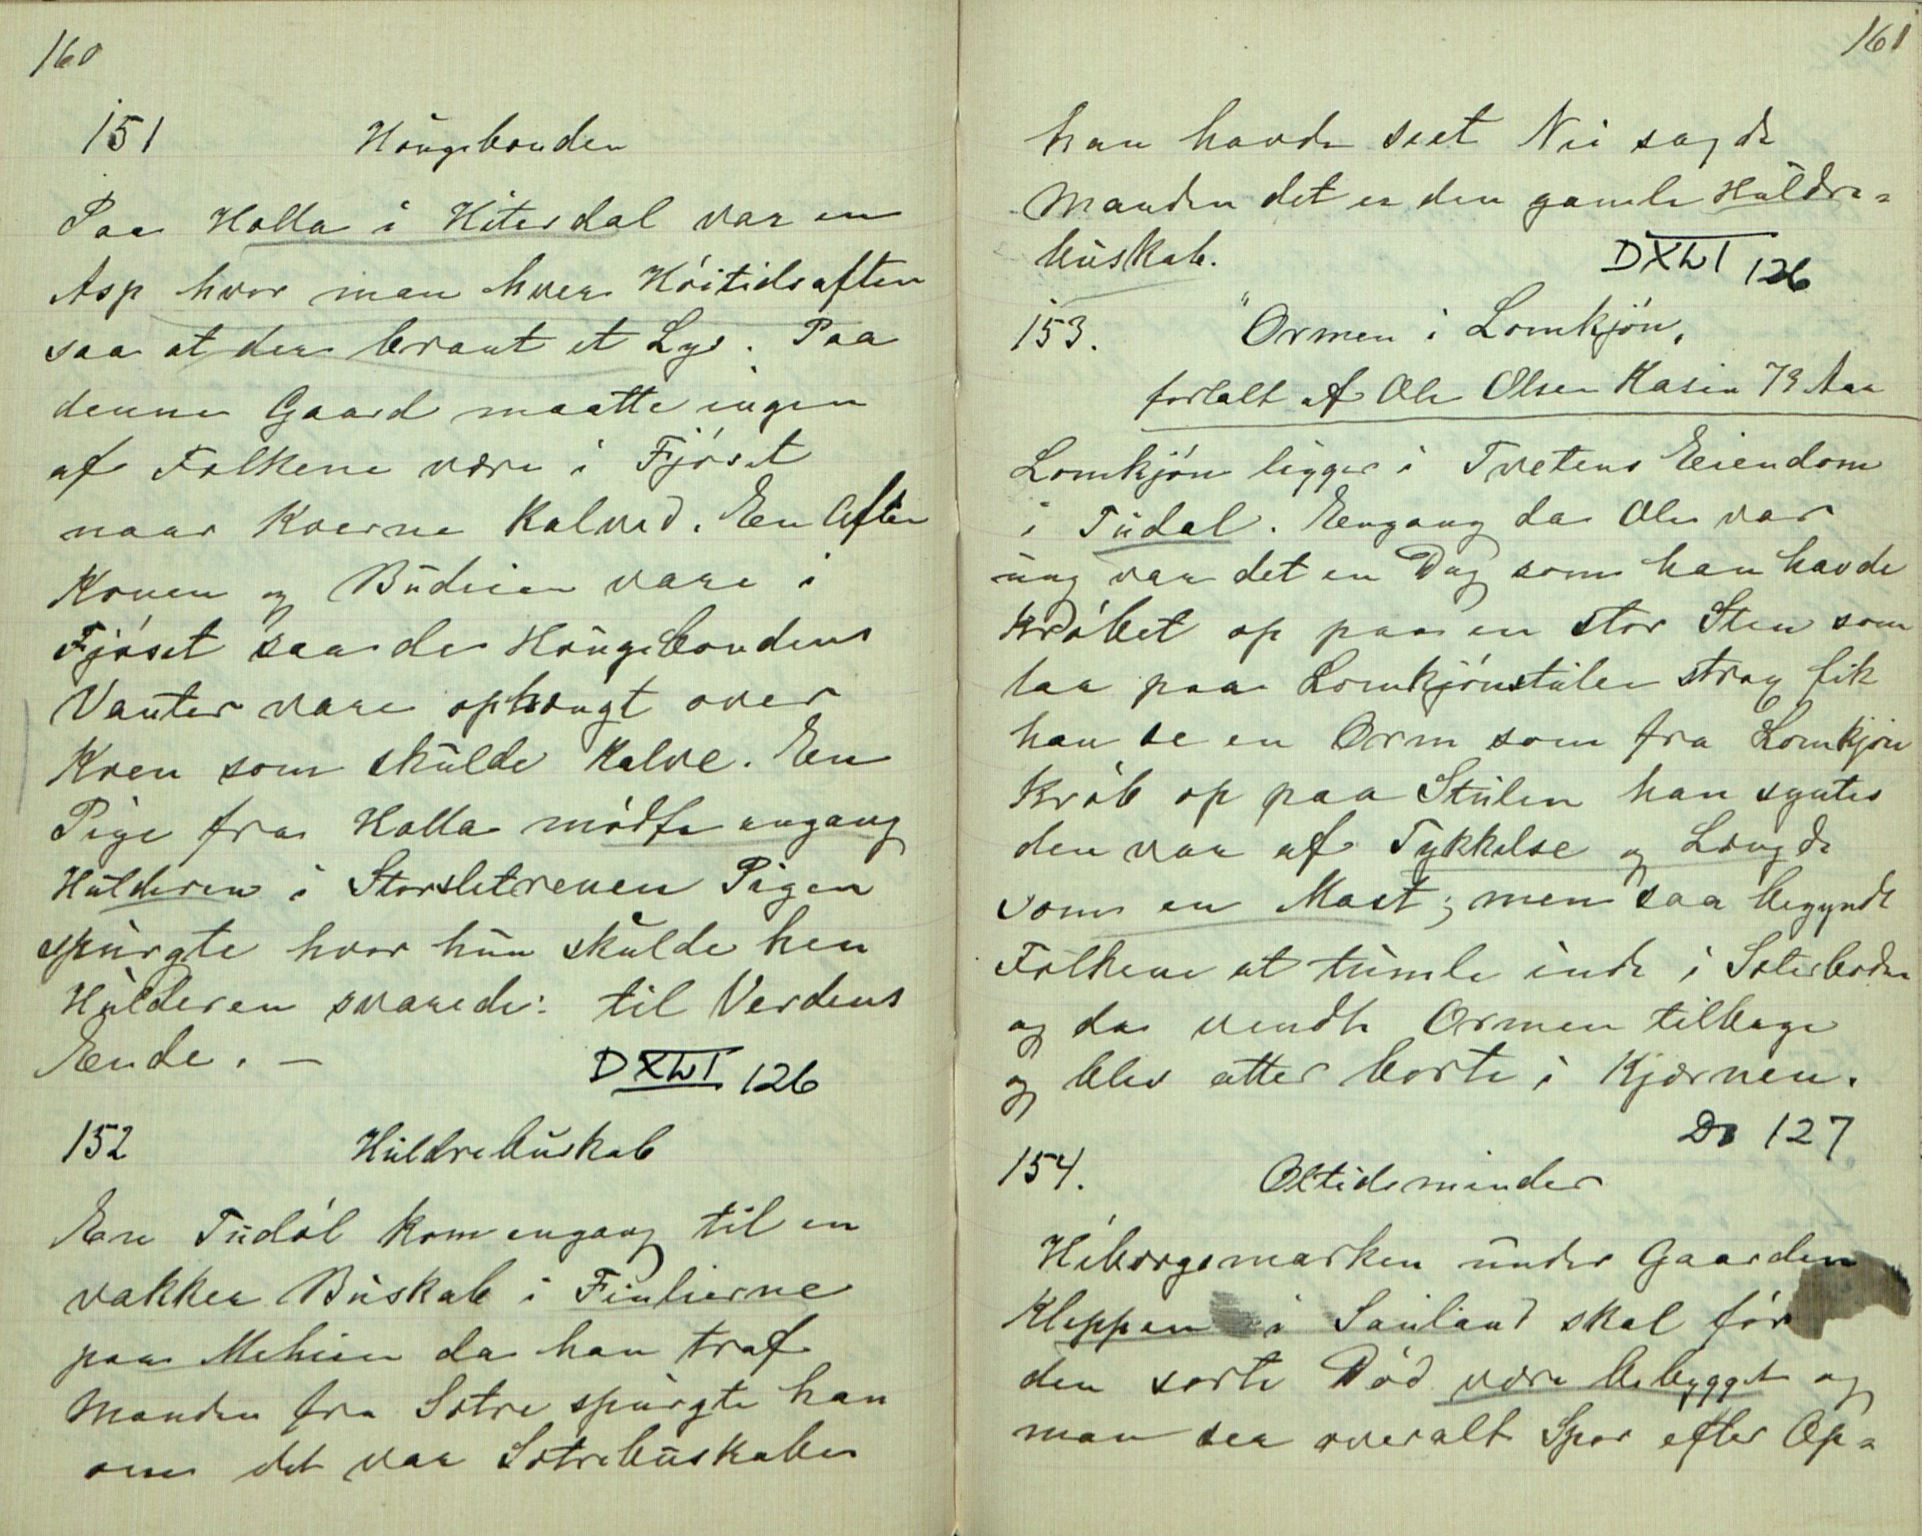 160
151 Haugebonden
Paa Holla i Hiterdal var en
Asp hvor man hver Høitidsaften
saa at der brant et Lys. Paa
denne Gaard maatte ingen
af Folkene være i Fjøset
naar Kverne kalved. En Aften
Konen og Budeien vare i
Fjøset saa de Haugebondens
Vanter vare ophængt over
Kven som skulde kalve. En
Pige fra Holla mødte engang
Hulderen i Storsletrenen Pigen
spurgte hvor hun skulde hen
Hulderen svarede: til Verdens
Ende. —
DXLI 126
152 Huldrebuskab
En Tudøl kom engang til en
vakker Buskab i Finlierne
paa Mehien da han traf
Manden fra Sætre spurgte han
om det var Sætrebuskaben
161
han havde seet Nei sagde
Manden det er den gamle Huldre=
buskab.
DXLI 126
153. "Ormen i Lomkjøn,
fortalt af Ole Olsen Kasin 73 Aar
Lomkjøn ligger i Tvetens Eiendom
i Tudal. Eengang da Ole var
ung var det en Dag som han havde
krøbet op paa en stor Sten som
laa paa Lomkjønstulen strax fik
han se en Orm som fra Lomkjøn
krøb op paa Stulen han syntes
den var af Tykkelse og Længde
som en Mast; men saa begyndte
Folkene at tumle inde i Sæterboden
og da vendte Ormen tilbage
og blev atter borte i Kjærnen.
Do 127
154. Oltidsminder
Håborgsmarken under Gaarden
Kleppen i Sauland skal før
den sorte Død være bebygget og
man ser overalt Spor efter Op=